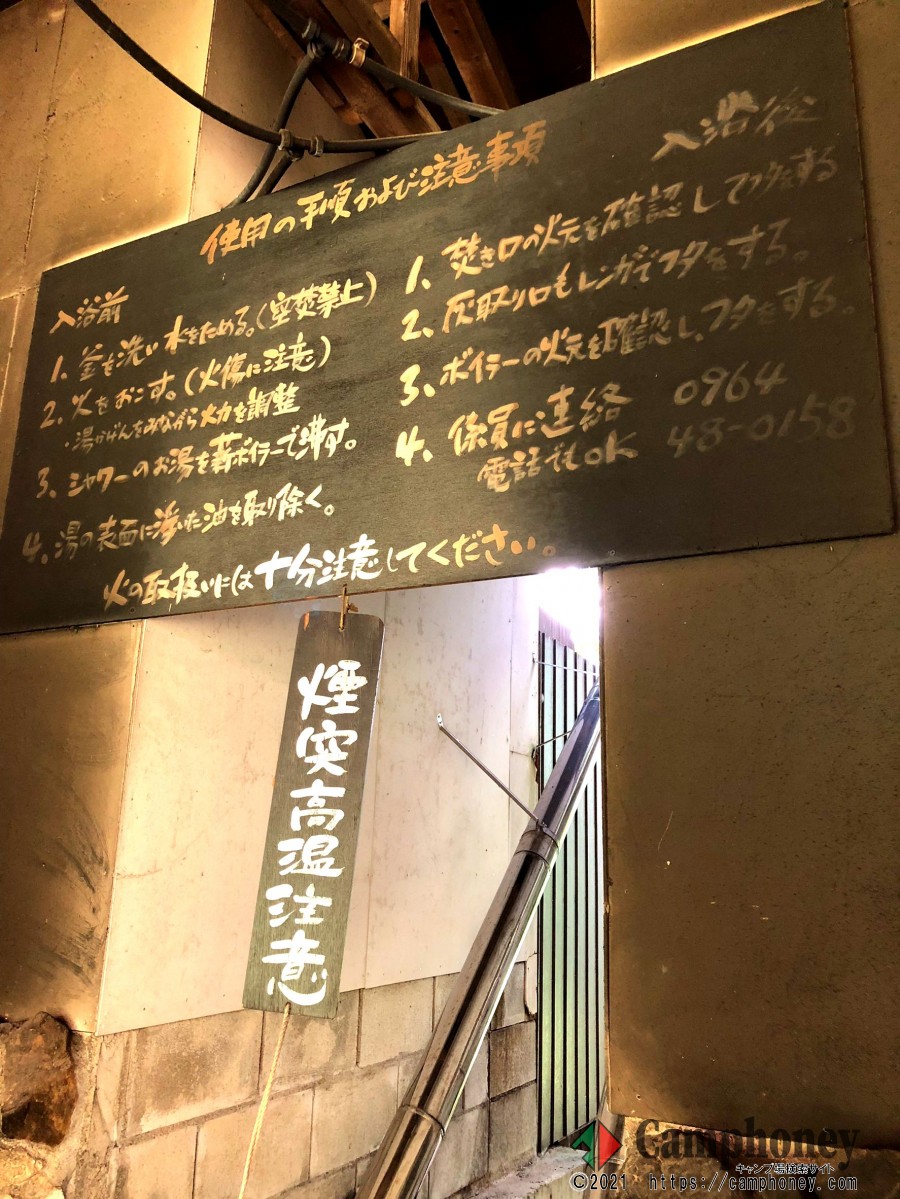 使用の手順および注意事項
入浴前
1. 釜を洗い水をためる。(空焚禁止)
2. 火をおこす。(火傷に注意)
・湯かげんをみながら火力を調整
3. シャワーのお湯を薪ボイラーで沸す。
4. 湯の表面に浮いた油を取り除く。
入浴後
1. 焚き口の火元を確認してフタをする
2. 灰取り口もレンガでフタをする。
3. ボイラーの火元を確認し、フタをする。
4. 係員に連絡 0964
電話でもOK 48-0158
火の取扱いには十分注意してください。
煙突高温注意
Camphoney
キャンプ場検索サイト
©2021 https://camphoney.com